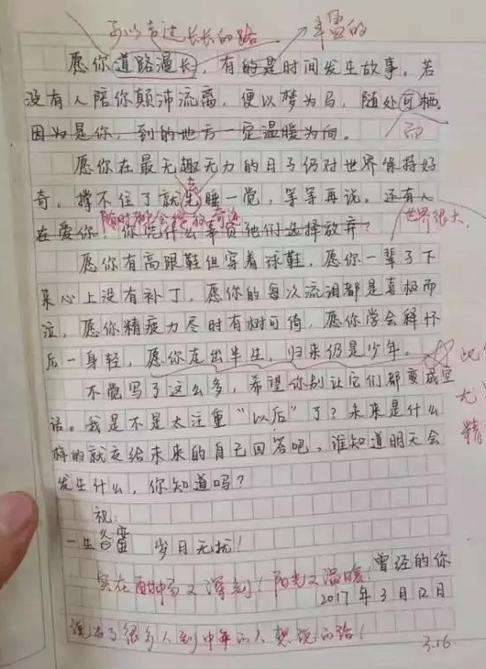 可以为这长长的路
丰富的
愿你道路漫长,有的是时间发生故事。若
没有人陪你颠沛流离,便以梦为马,随处可栖。
而
因为是你,到的地方一定温暖为向。
愿你在最无趣无力的日子仍对世界保持好
奇。撑不住了就先睡一觉,等等再说。还有人
在爱你 你凭什么辜负他们选择放弃?
世界很大
愿你有高跟鞋但穿着球鞋,愿你一辈子下
来心上没有补丁,愿你的每次流泪都是喜极而
泣,愿你精疲力尽时有树可倚,愿你学会释怀
后一身轻,愿你走出半生,归来仍是少年。
不觉写了这么多,希望你别让它们都变成空
话。我是不是太注重“以后”了?未来是什么
样的就交给未来的自己回答吧,谁知道明天会
发生什么,你知道吗?
祝:
一生 岁月无扰!
曾经的你
实在 又深刻!阳光又温暖!
2017年3月12日
很多人到中年的人想说的话!
3.16